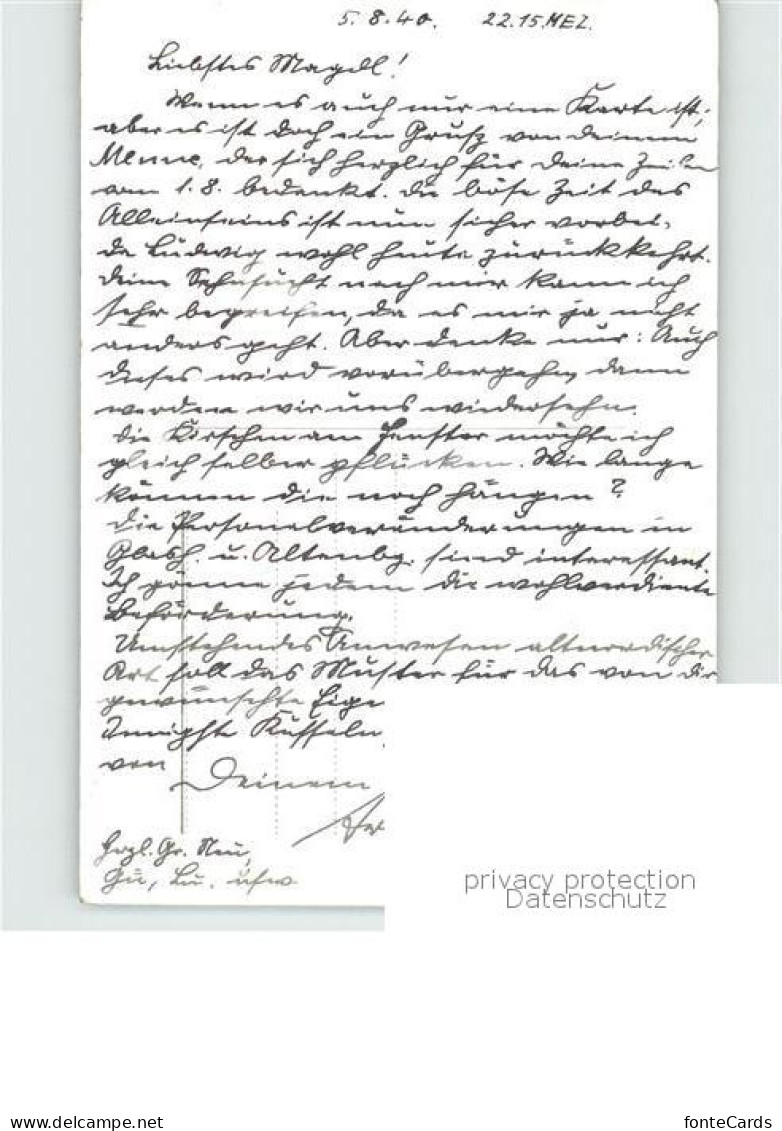 5.8.40. 22.15.MEZ.
Liebstes Magdl!
Wenn es auch nur eine Karte ist,
aber es ist doch ein Gruß von deinem
Menne, der sich herzlich für Deine Zeilen
vom 1.8. bedankt. Die böse Zeit des
Alleinseins ist nun sicher vorbei,
da Ludwig wohl heute zurückkehrt.
Deine Sehnsucht nach mir kann ich
sehr begreifen, da es mir ja nicht
anders geht. Aber denke nur: Auch
dieses wird vorübergehn, dann
werden wir uns wiedersehn.
Die Kirschen am Fenster möchte ich
gleich selber pflücken. Wie lange
können die noch hängen?
Die Personalveränderungen in
Glash. u. Altenbg. sind interessant.
Ich gönne jedem die wohlverdiente
Beförderung.
Umstehendes Anwesen altnordischer
Art soll das Muster für das von dir
gewünschte Eige
Innigste Küsseln,
von
Deinem
Herzl. Gr. Neu,
Gü, Lu. usw
privacy protection
Datenschutz
https://www.delcampe.net
fonteCards